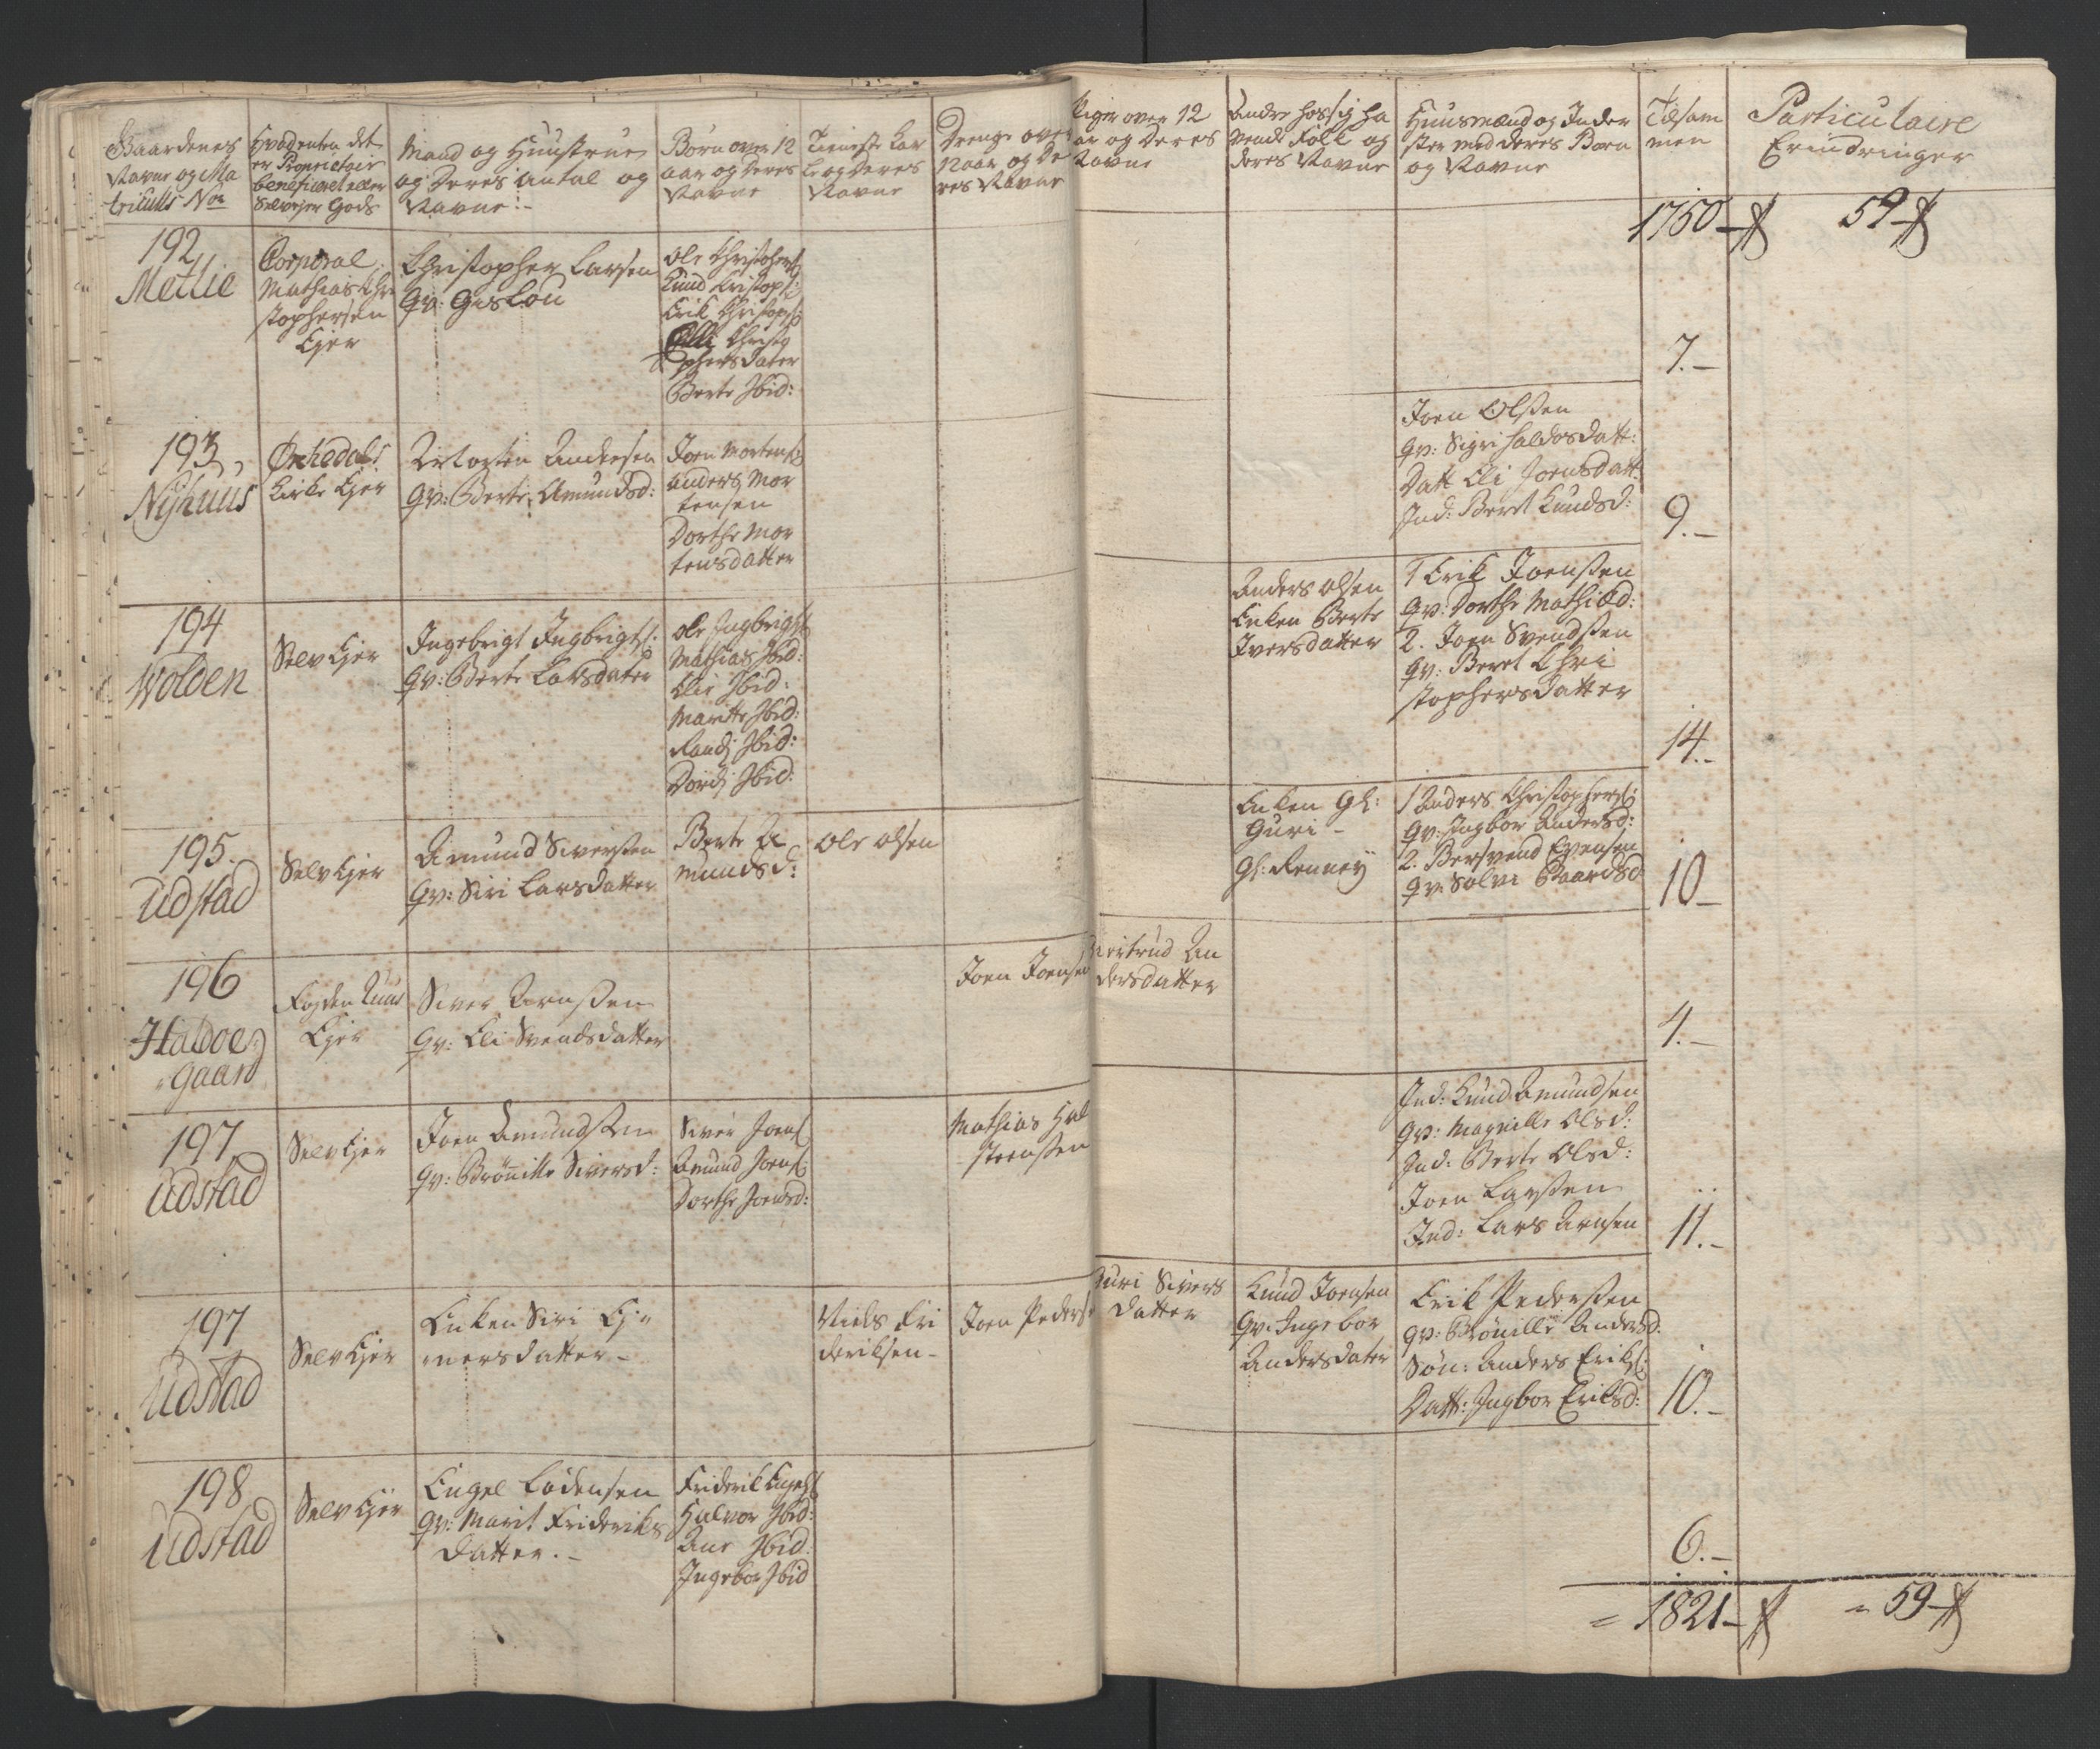 Gaardenes
Navne og Ma
triculs No
Hvad enten det
er Proprietair
beneficeret eller
Selvejer Gods
Mand og Hunstrue
og Deres Antal og
Navne
Børn over 12
aar og Deres
Navne
Tieneste Kar
le og Deres
Navne
Drenge over
12 aar og De
res Navne
Piger over 12
aar og Deres
Navne
Andre hos sig ha
vende Folk og
deres Navne
Huusmænd og Inder
ster med deres Børn
og Navne
Tilsam
men
Particulaire
Erindringer
1750 59
192
Metlie
Corporal
Mathias Chri
stophersen
Ejer
Christopher Larsen
Qv: Gislou
Ole Christophers:
Knud Cristops:
Erik Christops:
Christo
phersdater
Berte Ibid:
7.-
193,
Nÿhuus
Orkedals
Kirke Ejer
Morten Andersen
Qv: Berte Amundsd:
Joen Mortens:
Anders Mor
tensen
Dorthe Mor
tensdatter
Joen Olssen
Qv: Sigri Haldosdatt:
Datt Eli Joensdatt:
Ind: Beret Knudsd:
9.-
194
Wolden
Selv Ejer
Ingebrigt Ingbrigts:
Qv: Berte Larsdater
Ole Ingbrigts:
Mathias Ibid:
Elie Ibid:
Maritte Ibid:
Randj Ibid:
Dordj Ibid:
Anders Olsen
Enken Berte
Iversdatter
1 Erik Joenssen
Qv: Dorthe Mathisd:
2. Joen Svendssen
Qv: Beret Chri
stophersdatter
14.-
195.
Udstad
Selv Ejer
Amund Siverssen
Qv: Siri Larsdatter
Berte A
mundsd:
Ole Olsen
Enken Gl:
Guri -
Gl: Renneÿ
1 Anders Christophers:
Qv: Ingbor Andersd:
2. Bersvend Evensen
Qv: Solvi Baardsd:
10-
196
Haldoe
Gaard
Fogden Huus
Ejer
Siver Arnssen
Qv: Eli Svendsdatter
Joen Joensen
Giertrud An
dersdatter
4.-
197
Udstad
Selv Ejer
Joen Amundssen
Qv: Brønille Siversd:
Siver Joens:
Amund Joens:
Dorthe Joensd:
Mathias Hal
steenssen
Ind: Knud Amundsen
Qv: Magnille Olsd:
Ind: Berte Olsd:
Joen Larssen
Ind: Lars Arnsen
11.-
197
Udstad
Selv Ejer
Enken Siri Ej-
nersdatter -
Niels Fri
deriksen -
Joen Peders
Guri Sivers
datter
Knud Joensen
Qv: Ingebor
Andersdater
Erik Pederssen
Qv: Brønille Andersd:
Søn: Anders Eriks:
Datt: Ingbor Eriksd:
10.-
198
Udstad
Selv Ejer
Engel Lodensen
Qv: Marit Frideriks
datter. -
Friderik Engels:
Halvor Ibid:
Ane Ibid:
Ingebor Ibid
6.-
= 1821 - = 59 -